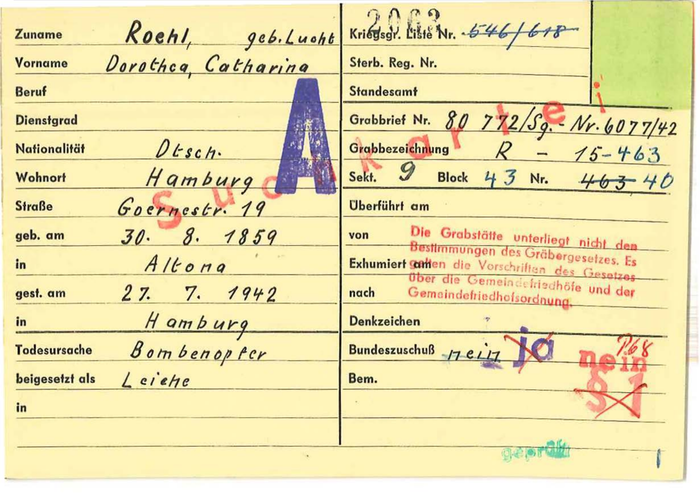 Zuname Roehl, geb. Lucht
Vorname Dorothea, Catharina
Beruf
Dienstgrad
Nationalität Dtsch.
Wohnort Hamburg
Straße Goernestr. 19
geb. am 30. 8. 1859
in Altona
gest. am 27. 7. 1942
in Hamburg
Todesursache Bombenopfer
beigesetzt als Leiche
in
A
Suchkartei
2063
Kriegsgr. Liste Nr. 546/618
Sterb. Reg. Nr.
Standesamt
Grabbrief Nr. 80 772/Sg.-Nr. 6077/42
Grabbezeichnung R - 15-463
Sekt. 9 Block 43 Nr. 463 40
Überführt am
von
Exhumiert am
nach
Die Grabstätte unterliegt nicht den
Bestimmungen des Gräbergesetzes. Es
gelten die Vorschriften des Gesetzes
über die Gemeindefriedhöfe und der
Gemeindefriedhofsordnung.
Denkzeichen
Bundeszuschuß nein ja nein
P.68
§ 1
Bem.
geprüft